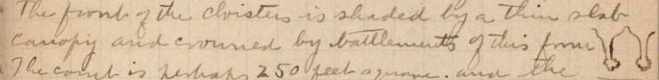 The front of the cloisters is shaded by a thin slab
canopy and crowned by battlements of this form
The court is perhaps 250 feet square. and the